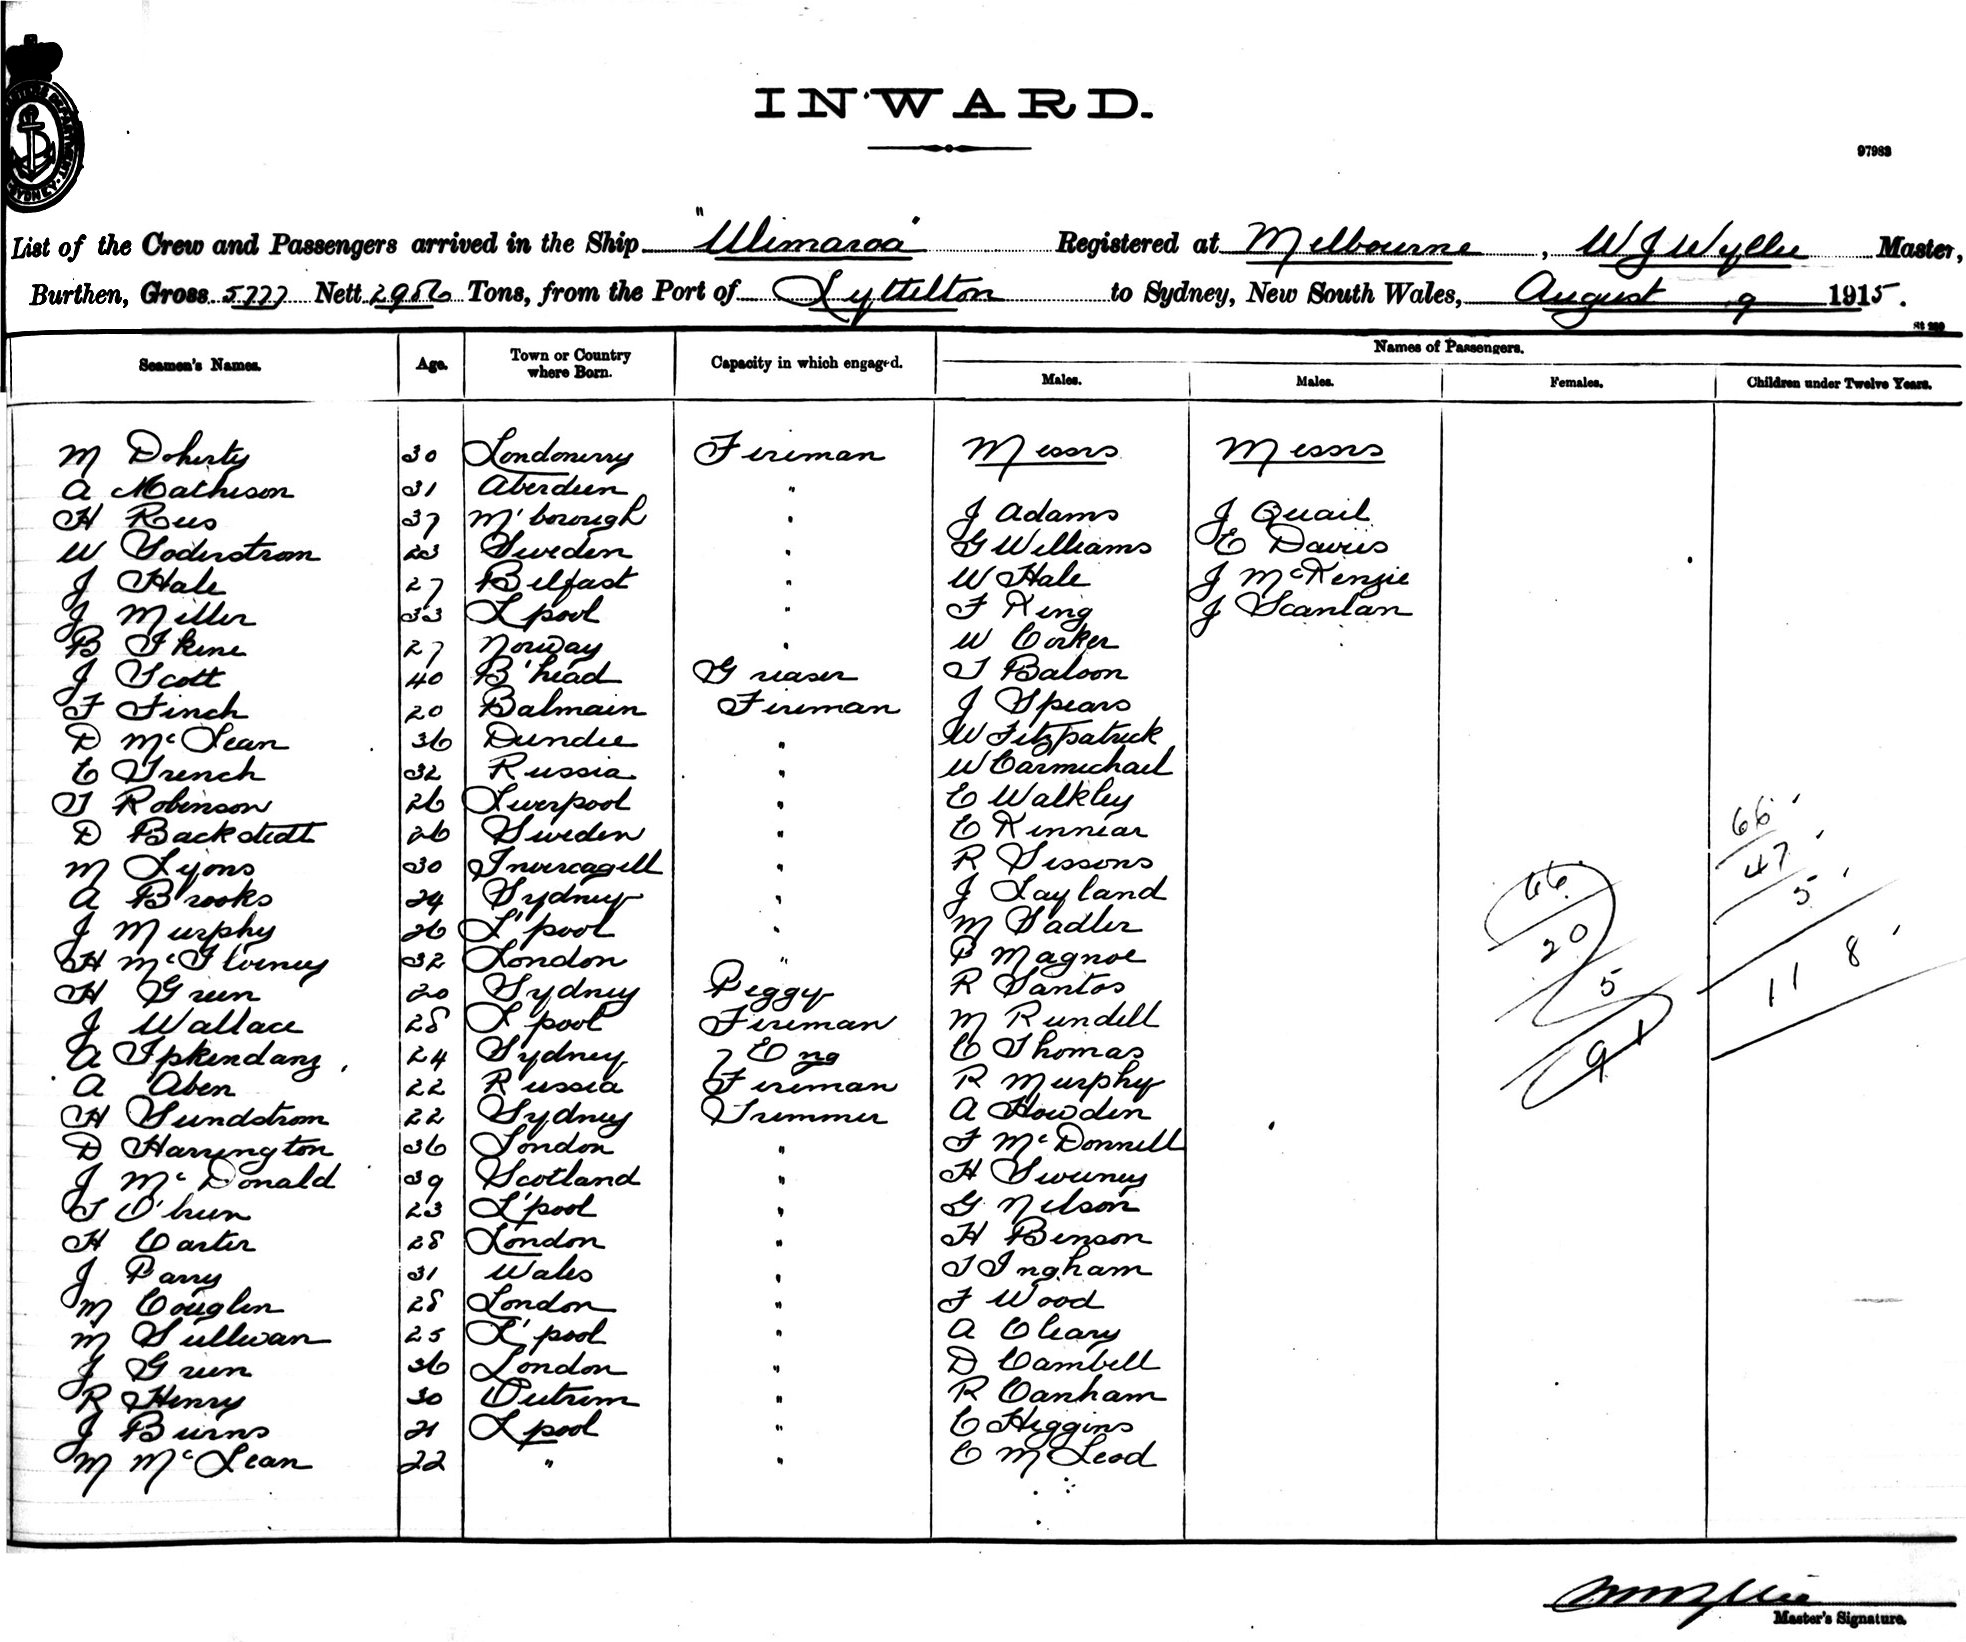 INWARD.
97983
List of the Crew and Passengers arrived in the Ship "Ulimaroa" Registered at Melbourne, W J Wyllie Master,
Burthen, Gross 5777 Nett 2956 Tons, from the Port of Lyttelton to Sydney, New South Wales, August 9 1915.
Names of Passengers.
Seamen's Names. Age. Town or Country where Born. Capacity in which engaged. Males. Males. Females. Children under Twelve Years.
M Doherty 30 Londonerry Fireman Messrs Messrs
A Matheson 31 Aberdeen "
H Rees 37 M'borough " J Adams J Quail
W Soderstrom 23 Sweden " G Williams E Davies
J Hale 27 Belfast " W Hale J McKenzie
J Miller 33 L'pool " F King J Scanlan
B Skene 27 Norway " W Corker
J Scott 40 B'head Greaser T Baloon
F Finch 20 Balmain Fireman J Spears
D McLean 36 Dundee " W Fitzpatrick
E French 32 Russia " W Carmichael
T Robinson 26 Liverpool " E Walkley
D Backstedt 26 Sweden " E Kinnear
M Lyons 30 Invercagell " R Sissons
A Brooks 24 Sydney " J Layland
J Murphy 26 L'pool " M Sadler
H McIlveney 32 London " P Magnoe
H Green 20 Sydney Peggy R Santos
J Wallace 28 L'pool Fireman M Rundell
A 24 Sydney 7 Eng C Thomas
A Aben 22 Russia Fireman R Murphy
H Sundstrom 22 Sydney Trimmer A Howden
D Harrington 36 London " F McDonnell
J McDonald 39 Scotland " H Sweeney
T O'brien 23 L'pool " G Nelson
H Carter 28 London " H Benson
J Parry 31 Wales " T Ingham
M Couglin 28 London " F Wood
M Sullivan 25 L'pool " A Cleary
J Green 36 London " D Cambell
R Henry 30 Outrim " R Canham
J Burns 21 L'pool " C Higgins
M McLean 22 " " C McLeod
66
20
5
91
66
47
5
118
Master's Signature.